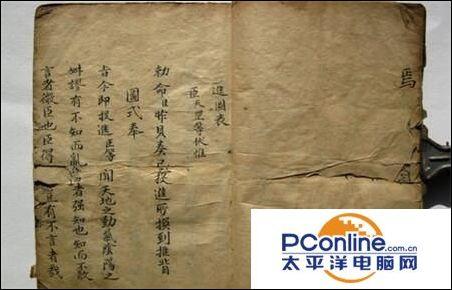 焉
進圖表
臣天罡等伏惟
勅命日昨具奏已投進所撰到推背
圖式奉
旨令即投進臣等聞天地之動氣陰陽之
辨謬有不知而亂言者强知也知而不敢
言者微臣也臣得豈有不言者哉
PConline
.com.cn
太平洋电脑网